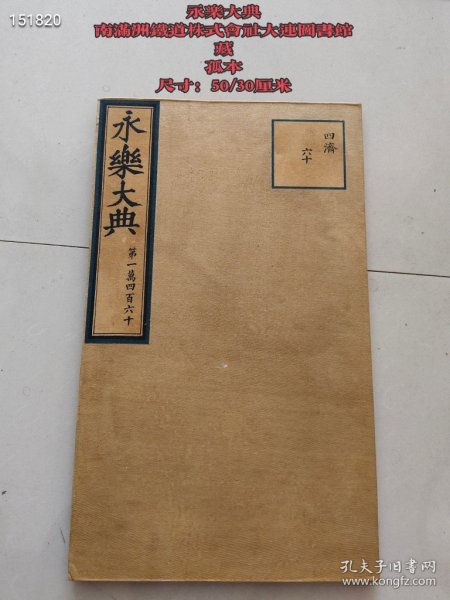 151820
永樂大典
南滿洲鐵道株式會社大連圖書館
藏
孤本
尺寸：50/30厘米
永樂大典
第一萬四百六十
四濟
六十
孔夫子旧书网
www.kongfz.com